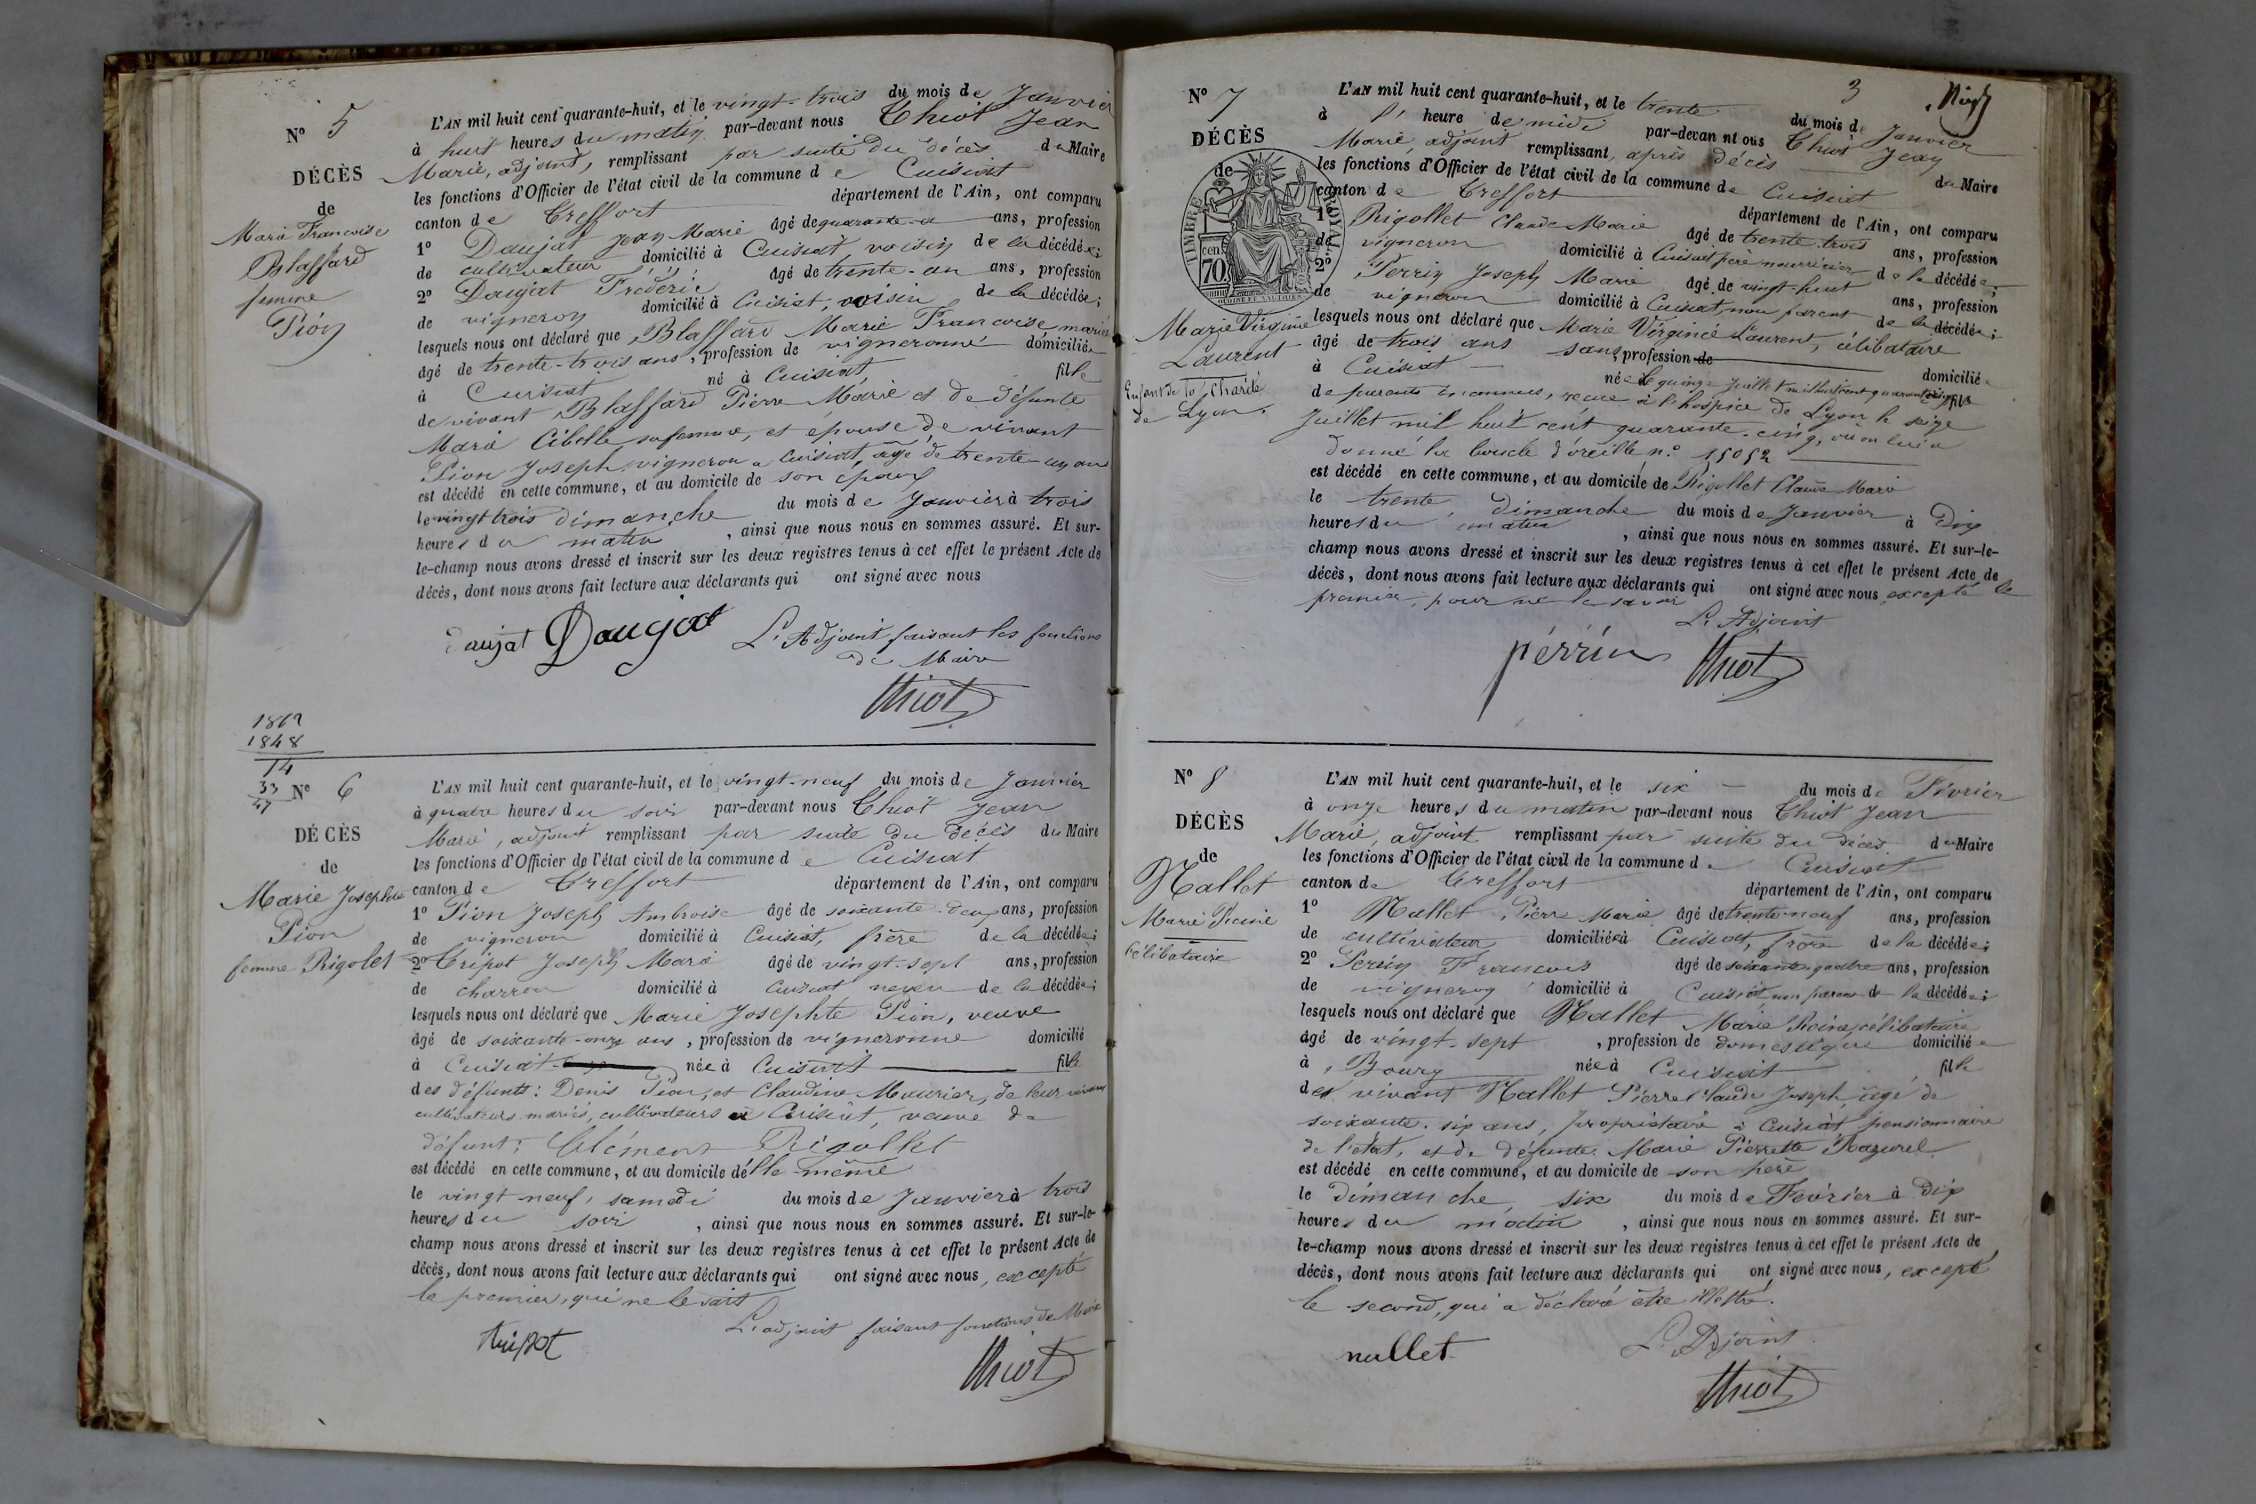 N° 5
DÉCÈS
de
Marie Francoise
Blaffard
femme
Pion
L'AN mil huit cent quarante-huit, et le vingt-trois du mois de Janvier
à huit heures du matin par-devant nous Thiot Jean
Marie, adjoint, remplissant par suite du décès du Maire
les fonctions d'Officier de l'état civil de la commune de Cuisiat
canton de Treffort département de l'Ain, ont comparu
1° Daujat Jean Marie âgé de quarante ans, profession
de cultivateur domicilié à Cuisiat voisin de la décédée;
2° Daujat Frédéric âgé de trente-un ans, profession
de vigneron domicilié à Cuisiat, voisin de la décédée;
lesquels nous ont déclaré que Blaffard Marie Francoise, mariée
âgé de trente-trois ans, profession de vigneronne domiciliée
à Cuisiat né à Cuisiat fille
de vivant Blaffard Pierre Marie et de défunte
Marie Cibelle sa femme, et épouse de vivant
Pion Joseph vigneron a Cuisiat, âgé de trente-un an
est décédé en cette commune, et au domicile de son époux
le vingt trois dimanche du mois de Janvier à trois
heures du matin, ainsi que nous nous en sommes assuré. Et sur-
le-champ nous avons dressé et inscrit sur les deux registres tenus à cet effet le présent Acte de
décès, dont nous avons fait lecture aux déclarants qui ont signé avec nous
Daujat Daujat L'Adjoint faisant les fonctions
de Maire
Thiot
1862
1848
14
33
47
N° 6
DÉCÈS
de
Marie Josephte
Pion
femme Rigolet
L'AN mil huit cent quarante-huit, et le vingt-neuf du mois de Janvier
à quatre heures du soir par-devant nous Thiot Jean
Marie, adjoint remplissant par suite du décès du Maire
les fonctions d'Officier de l'état civil de la commune de Cuisiat
canton de Treffort département de l'Ain, ont comparu
1° Pion Joseph Ambroise âgé de soixante-deux ans, profession
de vigneron domicilié à Cuisiat, frère de la décédée;
2° Tripot Joseph Marie âgé de vingt-sept ans, profession
de charron domicilié à Cuisiat neveu de la décédée;
lesquels nous ont déclaré que Marie Josephte Pion, veuve
âgé de soixante-onze ans, profession de vigneronne domicilié
à Cuisiat née à Cuisiat fille
des défunts: Denis Pion, et Claudine Mourier, de leur vivant
cultivateurs mariés, cultivateurs a Cuisiat, veuve de
défunt: Clément Rigollet
est décédé en cette commune, et au domicile d'elle-même
le vingt neuf, samedi du mois de Janvier à trois
heures du soir, ainsi que nous nous en sommes assuré. Et sur-le-
champ nous avons dressé et inscrit sur les deux registres tenus à cet effet le présent Acte de
décès, dont nous avons fait lecture aux déclarants qui ont signé avec nous, excepté
le premier, qui ne le sait
L'adjoint faisant fonctions de Maire
Tripot
Thiot
3
N° 7
DÉCÈS
de
TIMBRE ROYAL
70 cen
Marie Virginie
Laurent
Enfant de la Charité
de Lyon.
L'AN mil huit cent quarante-huit, et le trente du mois de Janvier
à l' heure de midi par-devant nous Thiot Jean
Marie, adjoint remplissant, après décès du Maire
les fonctions d'Officier de l'état civil de la commune de Cuisiat
canton de Treffort département de l'Ain, ont comparu
1° Rigollet Claude Marie âgé de trente-trois ans, profession
de vigneron domicilié à Cuisiat père nourricier de la décédée;
2° Perrin Joseph Marie âgé de vingt-huit ans, profession
de vigneron domicilié à Cuisiat, non parent de la décédée;
lesquels nous ont déclaré que Marie Virginie Laurent, célibataire
âgé de trois ans sans profession de domicilié
à Cuisiat née le quinze Juillet mil huit cent quarante cinq fille
de parents inconnus, recue à l'hospice de Lyon le seize
Juillet mil huit cent quarante-cinq, où on lui a
donné la boucle d'oreille n° 15052
est décédé en cette commune, et au domicile de Rigollet Claude Marie
le trente, dimanche du mois de Janvier à Dix
heures du matin, ainsi que nous nous en sommes assuré. Et sur-le-
champ nous avons dressé et inscrit sur les deux registres tenus à cet effet le présent Acte de
décès, dont nous avons fait lecture aux déclarants qui ont signé avec nous excepté le
premier, pour ne le savoir
L'Adjoint
pérrin Thiot
N° 8
DÉCÈS
de
Mallet
Marie Reine
Célibataire
L'AN mil huit cent quarante-huit, et le six du mois de Février
à onze heures du matin par-devant nous Thiot Jean
Marie, adjoint remplissant par suite du décès du Maire
les fonctions d'Officier de l'état civil de la commune de Cuisiat
canton de Treffort département de l'Ain, ont comparu
1° Mallet Pierre Marie âgé de trente-neuf ans, profession
de cultivateur domicilié à Cuisiat, frère de la décédée;
2° Perrin Francois âgé de soixante-quatre ans, profession
de vigneron domicilié à Cuisiat non parent de la décédée;
lesquels nous ont déclaré que Mallet Marie Reine célibataire
âgé de vingt-sept, profession de domestique domiciliée
à Bourg née à Cuisiat fille
de vivant Mallet Pierre Claude Joseph, âgé de
soixante-six ans, propriétaire à Cuisiat pensionnaire
de l'état, et de défunte Marie Pierrette Razurel
est décédé en cette commune, et au domicile de son père
le dimanche, six du mois de Février à Dix
heures du matin, ainsi que nous nous en sommes assuré. Et sur-
le-champ nous avons dressé et inscrit sur les deux registres tenus à cet effet le présent Acte de
décès, dont nous avons fait lecture aux déclarants qui ont signé avec nous, excepté
le second, qui a déclaré être illettré.
mallet L'Adjoint
Thiot